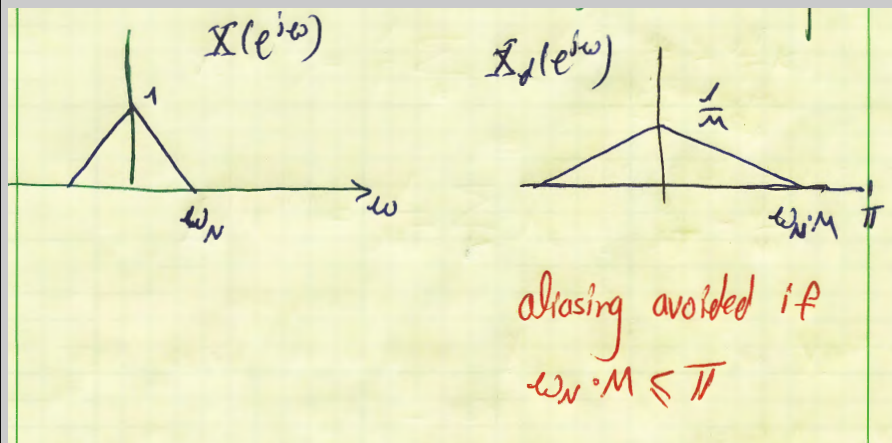 X(e^{jω})
1
ω_N
ω
X_d(e^{jω})
1/M
ω_N·M
π
aliasing avoided if
ω_N·M ≤ π